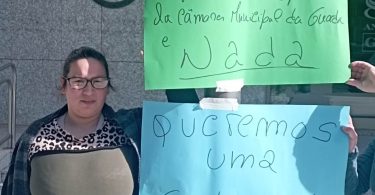 da Câmara Municipal da Guarda
e
Nada
Queremos
uma